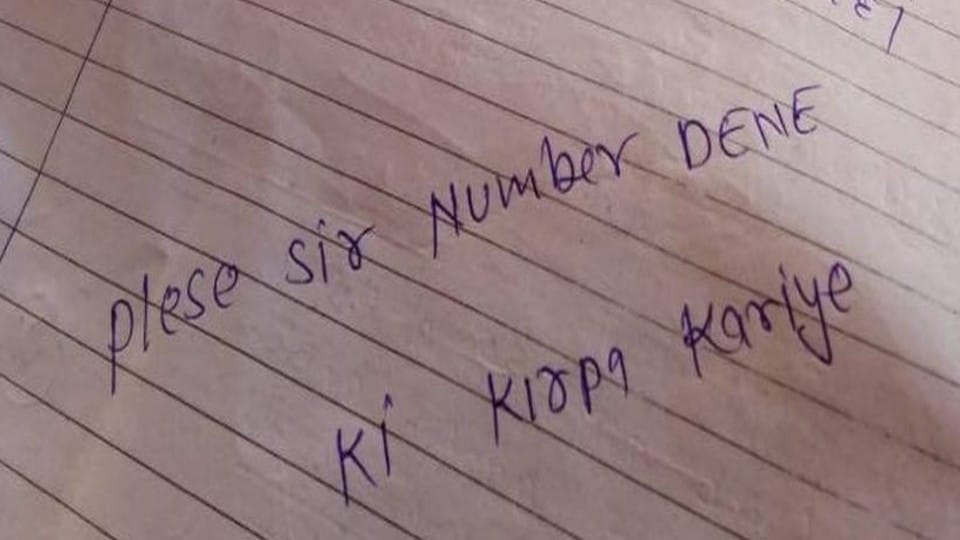 plese sir Number DENE
Ki Kirpa Kariye